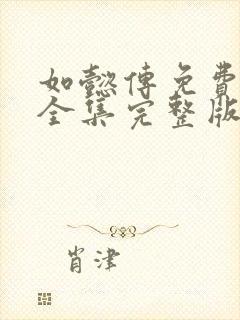 如懿传免費
全集完整版
肖津